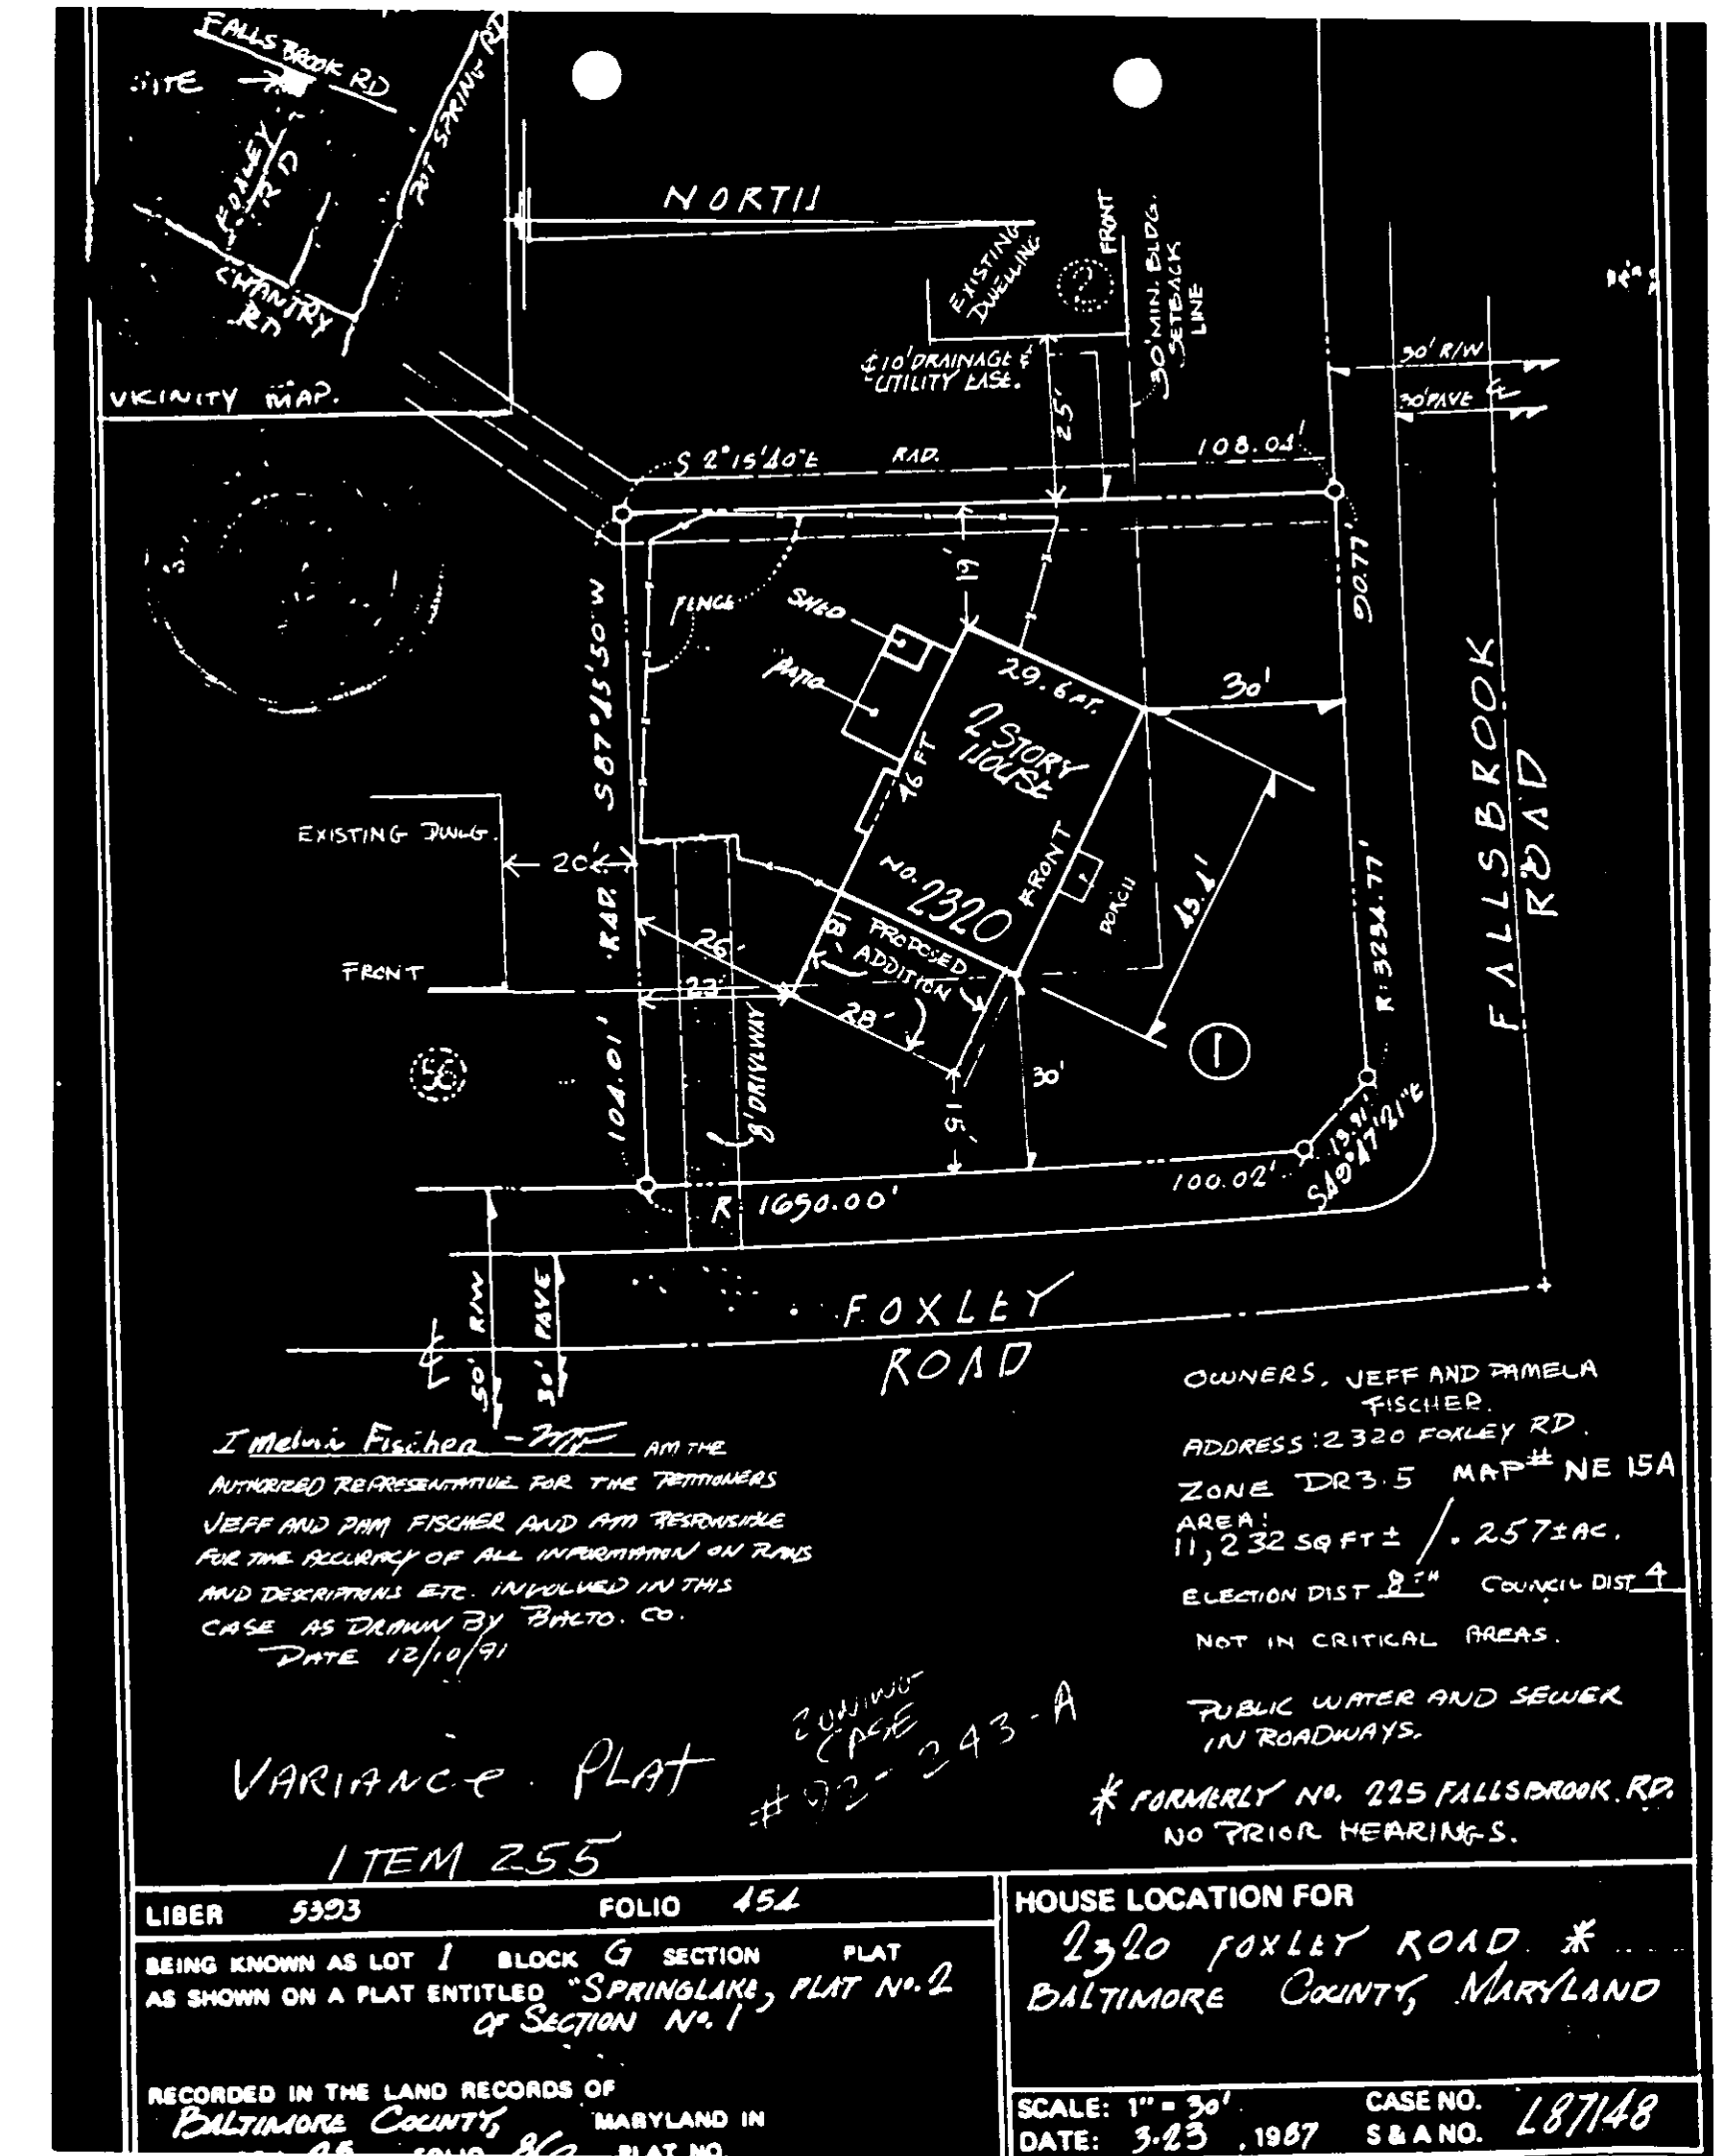 FALLSBROOK RD
SITE
POT SPRING RD
FOXLEY
RD
CHANTRY
RD
VICINITY MAP.
NORTH
EXISTING
DWELLING
2
FRONT
30' MIN. BLDG.
SETBACK
LINE
10' DRAINAGE &
UTILITY EASE.
25'
50' R/W
30' PAVE
S 2° 15' 40" E
RAD.
108.04'
90.77'
19'
FENCE
SHED
PATIO
29.6 FT.
30'
2 STORY
HOUSE
46 FT
S 87° 45' 50" W
RAD.
104.01'
EXISTING DWLG.
20'
FRONT
NO. 2320
FRONT
PORCH
43.4'
R: 3234.77'
FALLSBROOK
ROAD
26'
23'
18'
PROPOSED
ADDITION
28'
56
8' DRIVEWAY
15'
30'
1
13.91'
S49° 47' 21" E
100.02'
R: 1650.00'
50' R/W
30' PAVE
FOXLEY
ROAD
OWNERS. JEFF AND PAMELA
FISCHER.
ADDRESS: 2320 FOXLEY RD.
ZONE DR3.5 MAP# NE 15A
AREA:
11,232 SQ FT ± / .257± AC.
ELECTION DIST 8TH COUNCIL DIST 4
NOT IN CRITICAL AREAS.
PUBLIC WATER AND SEWER
IN ROADWAYS.
* FORMERLY NO. 225 FALLSBROOK. RD.
NO PRIOR HEARINGS.
I Melvin Fischer - AM THE
AUTHORIZED REPRESENTATIVE FOR THE PETITIONERS
JEFF AND PAM FISCHER AND AM RESPONSIBLE
FOR THE ACCURACY OF ALL INFORMATION ON PLANS
AND DESCRIPTIONS ETC. INVOLVED IN THIS
CASE AS DRAWN BY BALTO. CO.
DATE 12/10/91
ZONING
CASE
#92-243-A
VARIANCE PLAT
ITEM 255
LIBER 5393 FOLIO 454
BEING KNOWN AS LOT 1 BLOCK G SECTION PLAT
AS SHOWN ON A PLAT ENTITLED "SPRINGLAKE, PLAT No. 2
OF SECTION No. 1
RECORDED IN THE LAND RECORDS OF
BALTIMORE COUNTY, MARYLAND IN
FOLIO 86 PLAT NO.
HOUSE LOCATION FOR
2320 FOXLEY ROAD *
BALTIMORE COUNTY, MARYLAND
SCALE: 1" = 30'
CASE NO.
DATE: 3-23, 1987
S & A NO. L87148